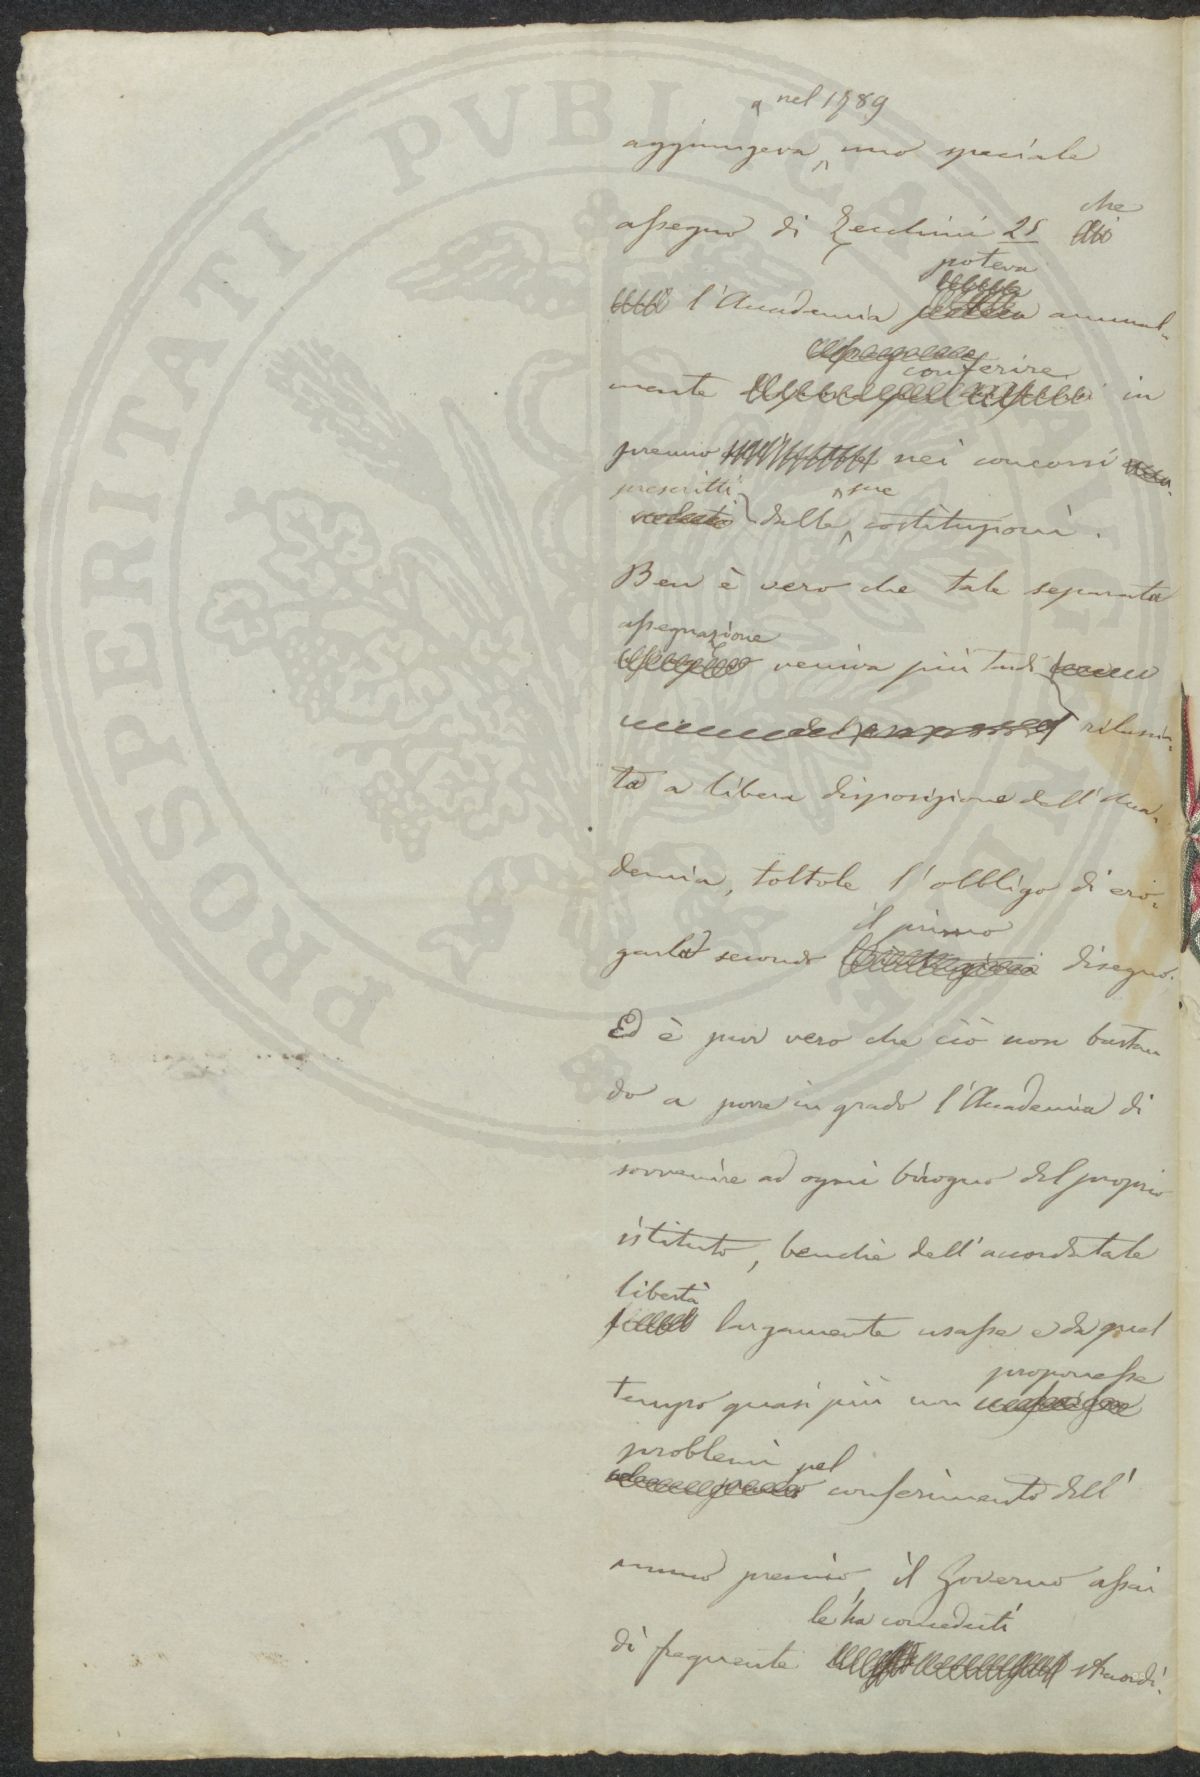 nel 1789
aggiungeva uno speciale
assegno di Zecchini 25 che
l'Accademia poteva annual-
mente conferire in
premio nei concorsi
prescritti dalle sue costituzioni.
Ben è vero che tale separata
assegnazione veniva più tardi
rilascia-
ta a libera disposizione dell'Acca-
demia, toltole l'obbligo di ero-
garla secondo il primo disegno.
Ed è pur vero che ciò non bastan
do a porre in grado l'Accademia di
sovvenire ad ogni bisogno del proprio
istituto, benchè dell'accordatale
libertà largamente usasse e da quel
tempo quasi più non proponesse
problemi pel conferimento dell'
annuo premio, il Governo assai
di frequente le ha conceduti straordi-
PROSPERITATI PVBLICAE